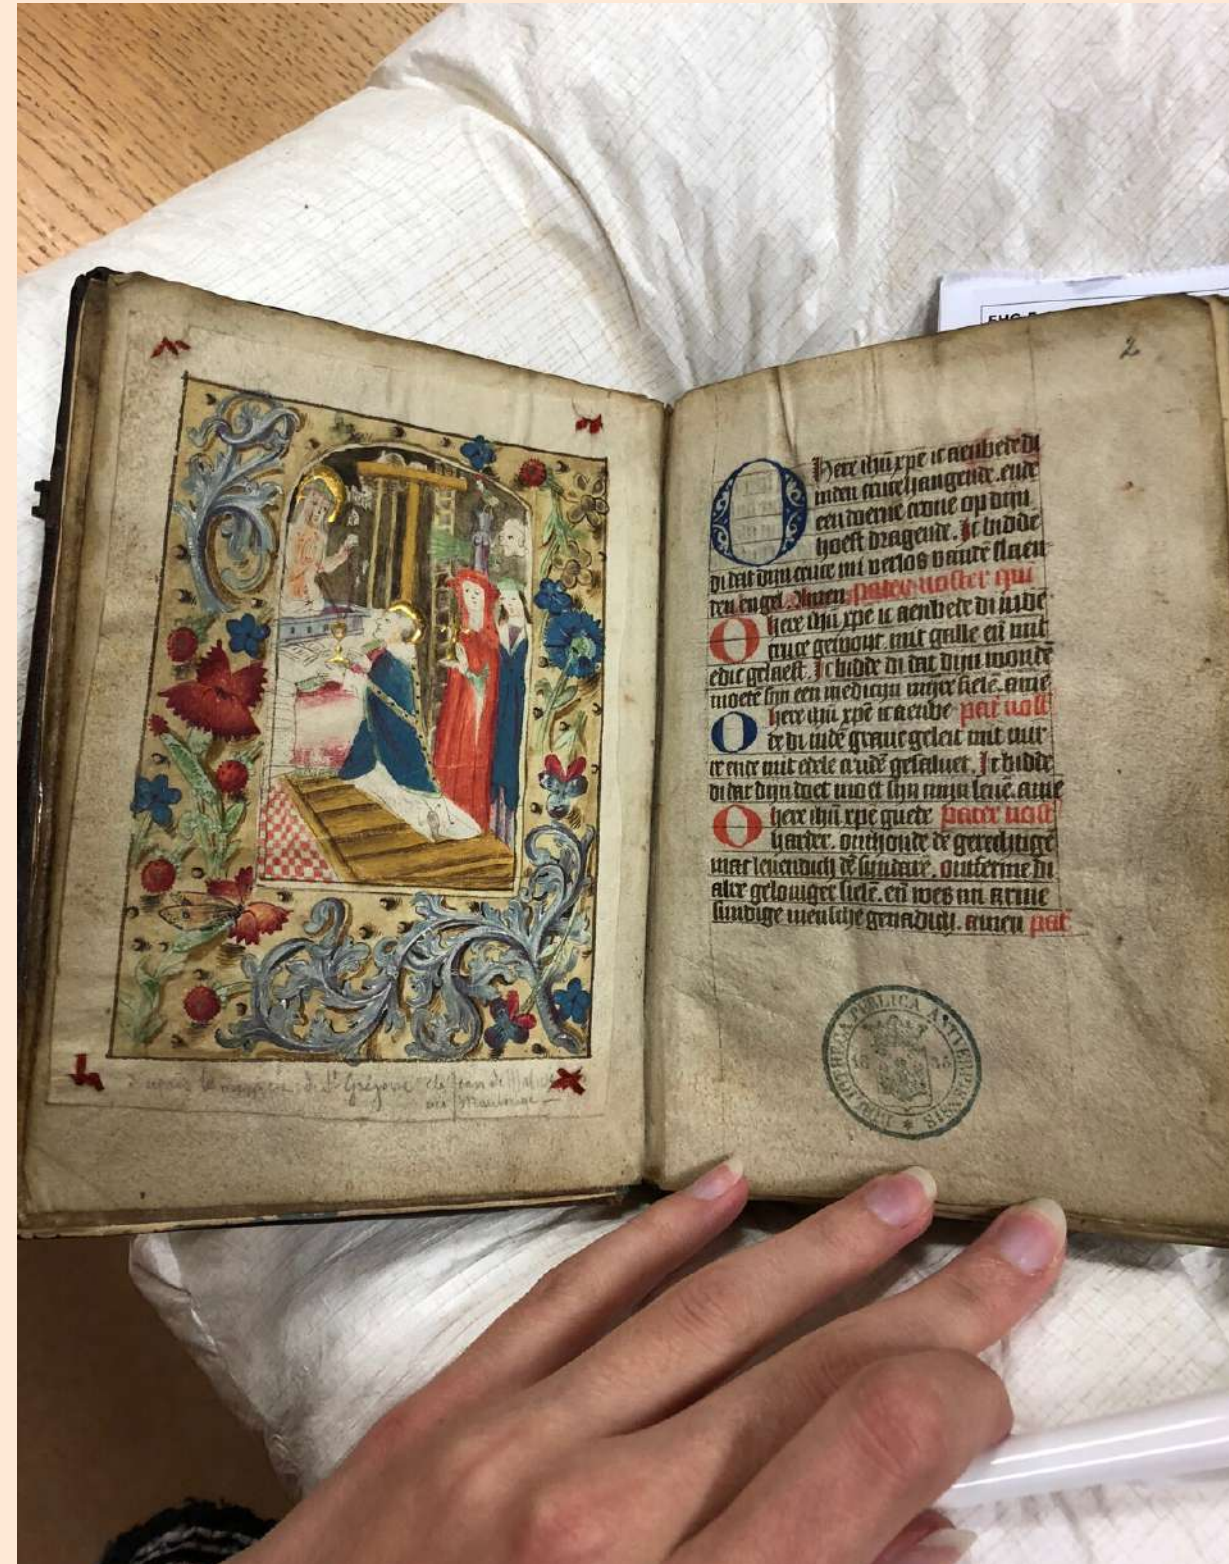 EHG B
2
O Here ihũ xpe ic aenbede di
inden cruce hangende. ende
een doerne crone op dijn
hoeft dragende. Ic bidde
di dat dijn cruce mi verlos vandẽ slaen
den engel. Amen. pater noster qui
O here ihũ xpe ic aenbede di inde
cruce gewont. mit galle eñ mit
edic gelaeft. Ic bidde di dat dijn wonde
moetẽ sijn een medicijn mijnre sielẽ. amẽ
O here ihũ xpẽ ic aenbe patẽ nost
de di indẽ graue geleit mit mir
re ende mit edele crudẽ gesaluet. Ic bidde
di dat dijn doet moet sijn mijn leuẽ. amẽ
O here ihũ xpe guede pater nost
harder. onthoude de gerechtige
mac leuendich dẽ sundarẽ. ontferme di
alre gelouiger sielẽ. eñ wes mi arme
sundige mensche genadich. amen pat
BIBLIOTHECA PUBLICA ANTVERPIENSIS
d'après la de St Grégoire de Jean de